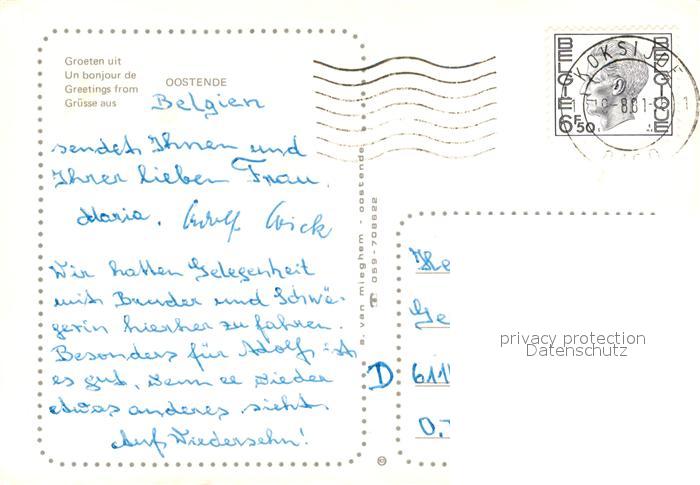 Groeten uit
Un bonjour de
Greetings from OOSTENDE
Grüsse aus
Belgien
sendet Ihnen und
Ihrer lieben Frau.
Maria. Adolf
Wir hatten Gelegenheit
mit Bruder und Schwä-
gerin hierher zu fahren.
Besonders für Adolf ist
es gut, wenn er wieder
etwas anderes sieht.
Auf Wiedersehn!
e. van mieghem - oostende
☎ 059-708622
©
BELGIE BELGIQUE
6F50
KOKSIJDE
He
Ge
D 611
O.
privacy protection
Datenschutz